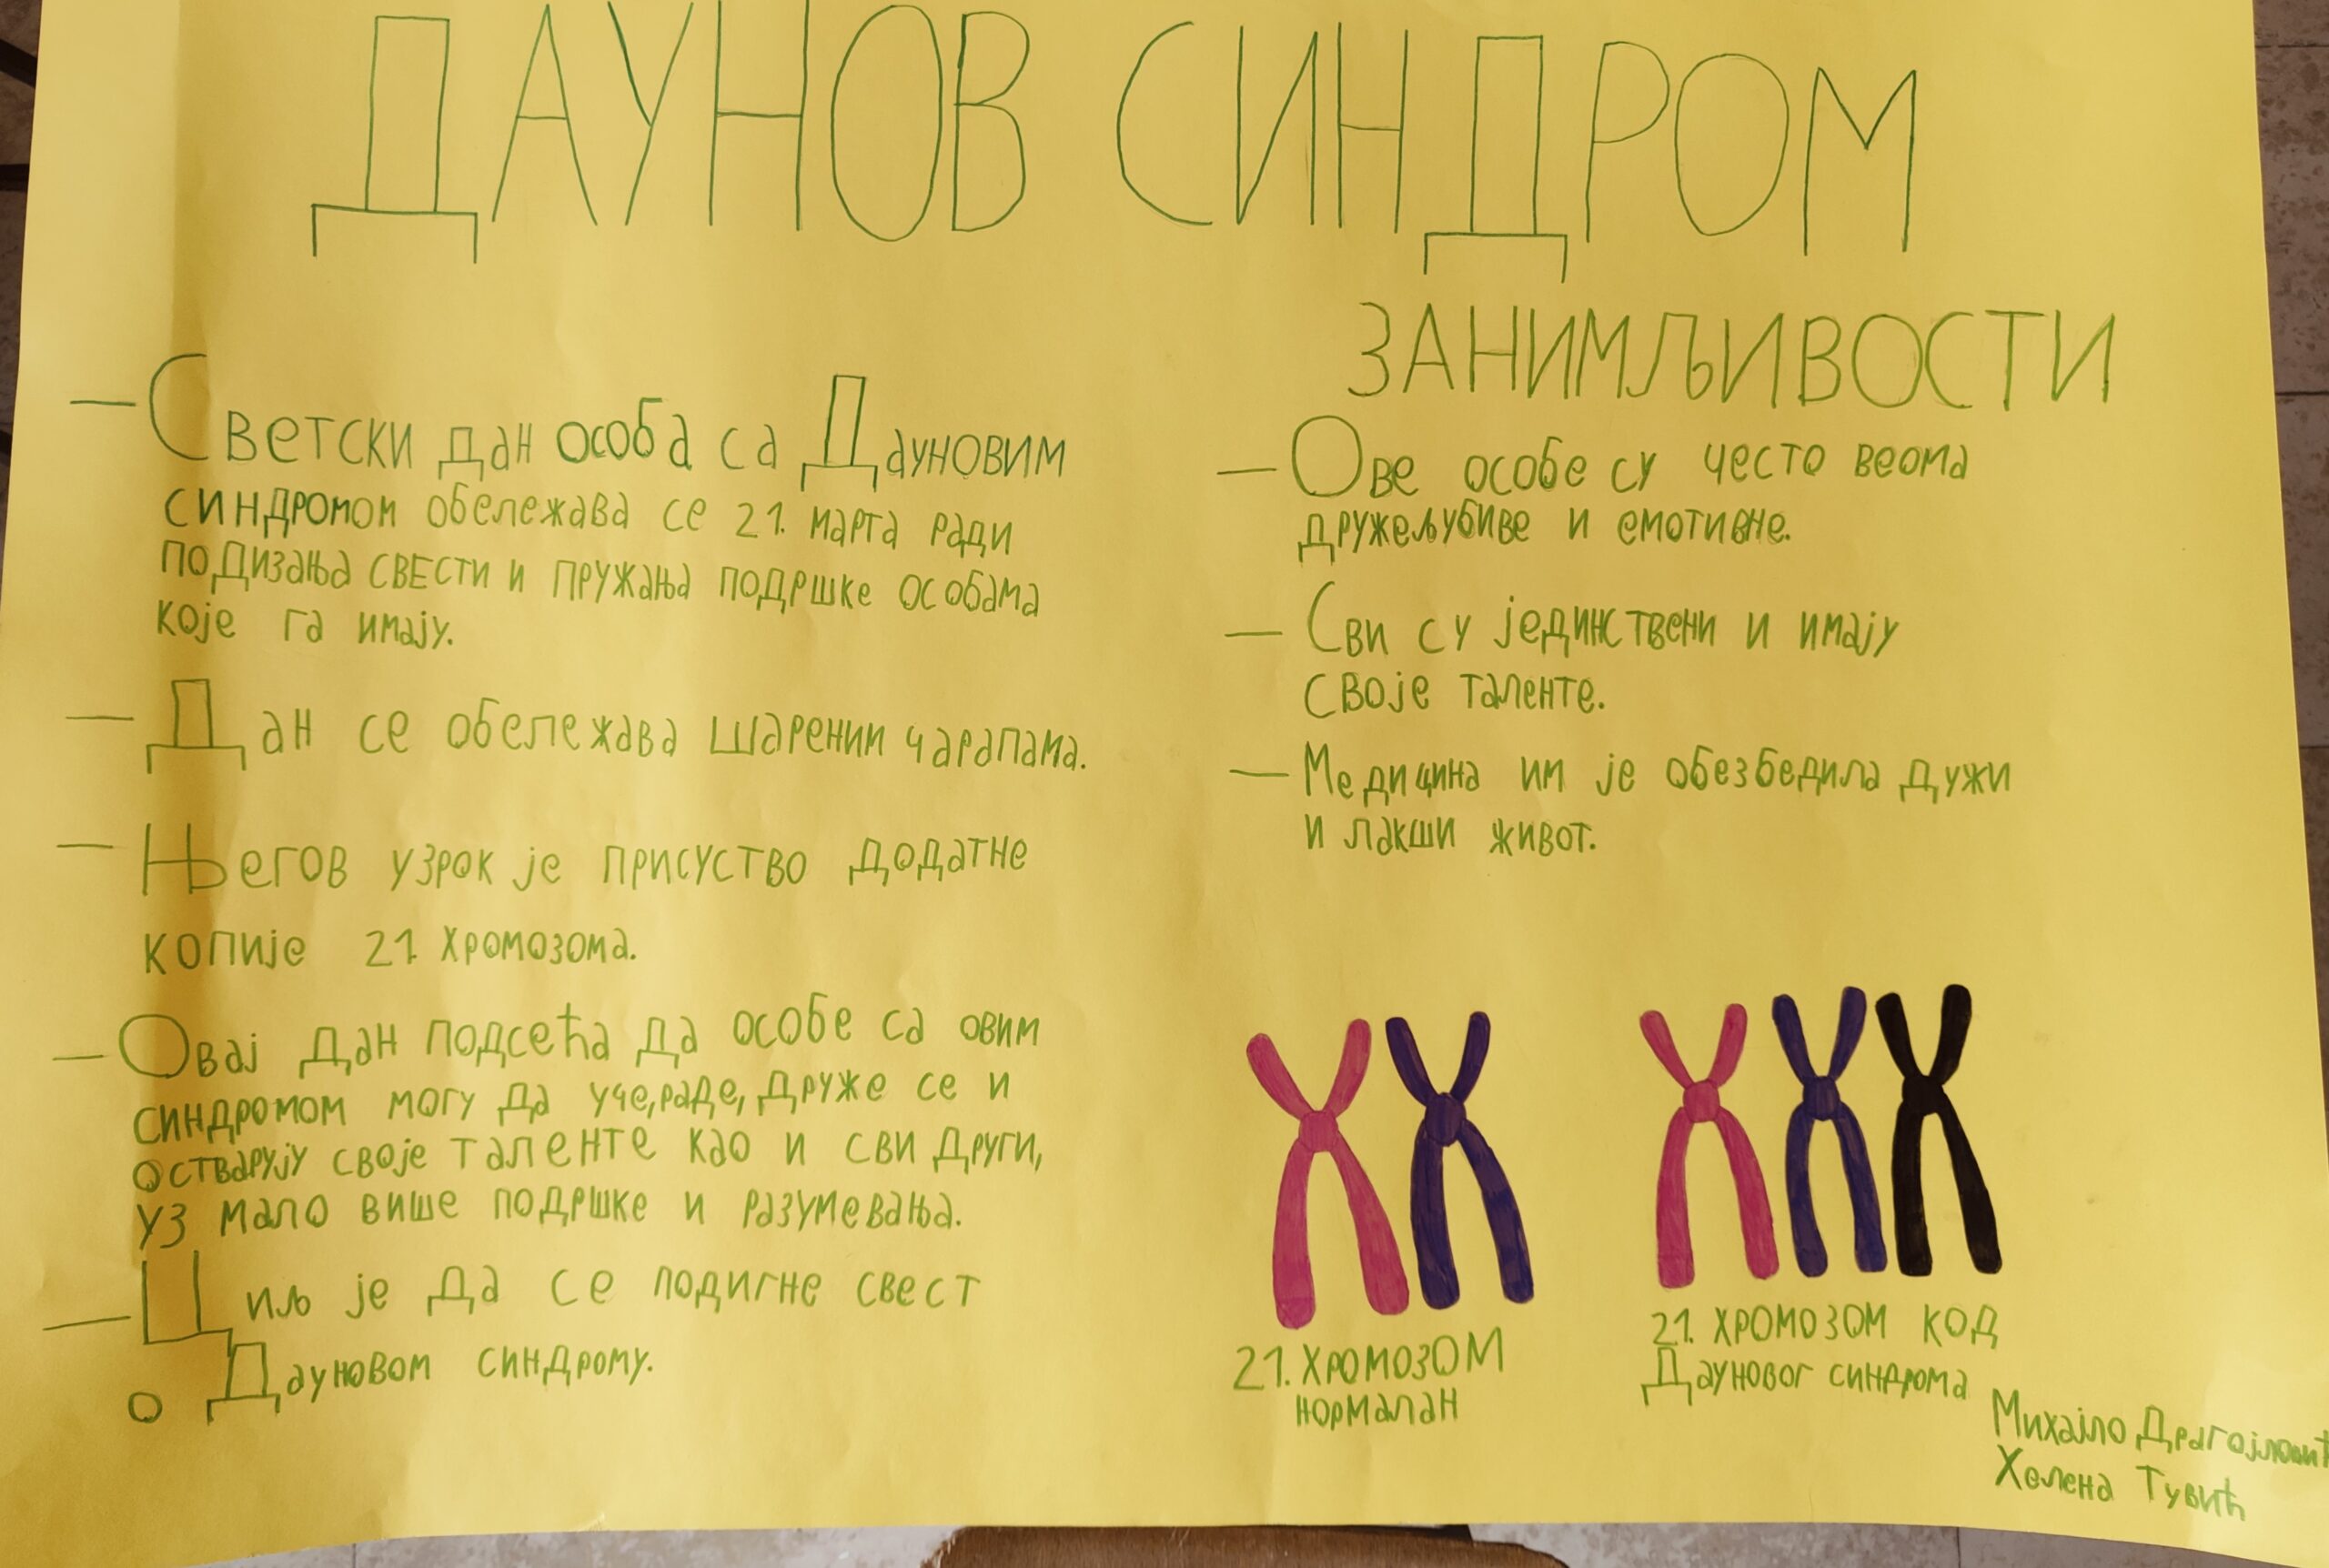 ДАУНОВ СИНДРОМ
— Светски дан особа са Дауновим
синдромом обележава се 21. марта ради
подизања свести и пружања подршке особама
које га имају.
— Дан се обележава шареним чарапама.
— Његов узрок је присуство додатне
копије 21. хромозома.
— Овај дан подсећа да особе са овим
синдромом могу да уче, раде, друже се и
остварују своје таленте као и сви други,
уз мало више подршке и разумевања.
— Циљ је да се подигне свест
о Дауновом синдрому.
ЗАНИМЉИВОСТИ
— Ове особе су често веома
дружељубиве и емотивне.
— Сви су јединствени и имају
своје таленте.
— Медицина им је обезбедила дужи
и лакши живот.
21. ХРОМОЗОМ
нормалан
21. ХРОМОЗОМ КОД
Дауновог синдрома
Михајло Драгојловић
Хелена Тувић